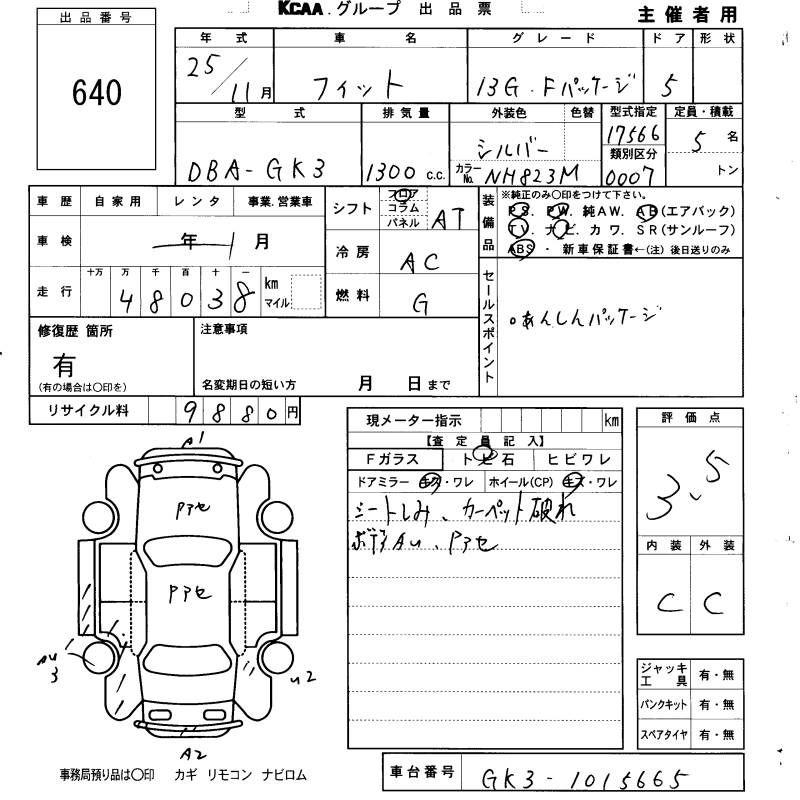 KCAA.グループ 出品票
主催者用
出品番号
640
年式 車名 グレード ドア 形状
25/11月 フィット 13G.Fパッケージ 5
型式 排気量 外装色 色替 型式指定 定員・積載
DBA-GK3 1300c.c. シルバー 17566 5名
カラーNo. NH823M 類別区分 0007 トン
車歴 自家用 レンタ 事業.営業車
シフト フロア コラム パネル AT
装備品 ※純正のみ○印をつけて下さい。
PS. PW. 純AW. AB(エアバック)
TV. ナビ. カワ. SR(サンルーフ)
ABS・ 新車保証書←(注) 後日送りのみ
車検 年 月
冷房 AC
走行 十万 万 千 百 十 一 km マイル
48038
燃料 G
セールスポイント
○あんしんパッケージ
修復歴 箇所
有
(有の場合は○印を)
注意事項
名変期日の短い方 月 日まで
リサイクル料 9880円
現メーター指示 km
【査定員記入】
Fガラス トビ石 ヒビワレ
ドアミラー キズ・ワレ ホイール(CP) キズ・ワレ
シートしみ、カーペット破れ
ボデ
評価点
3、5
内装 外装
C C
A1
Pアセ
Pアセ
AU3
U2
A2
ジャッキ工具 有・無
パンクキット 有・無
スペアタイヤ 有・無
事務局預り品は○印 カギ リモコン ナビロム
車台番号 GK3-1015665